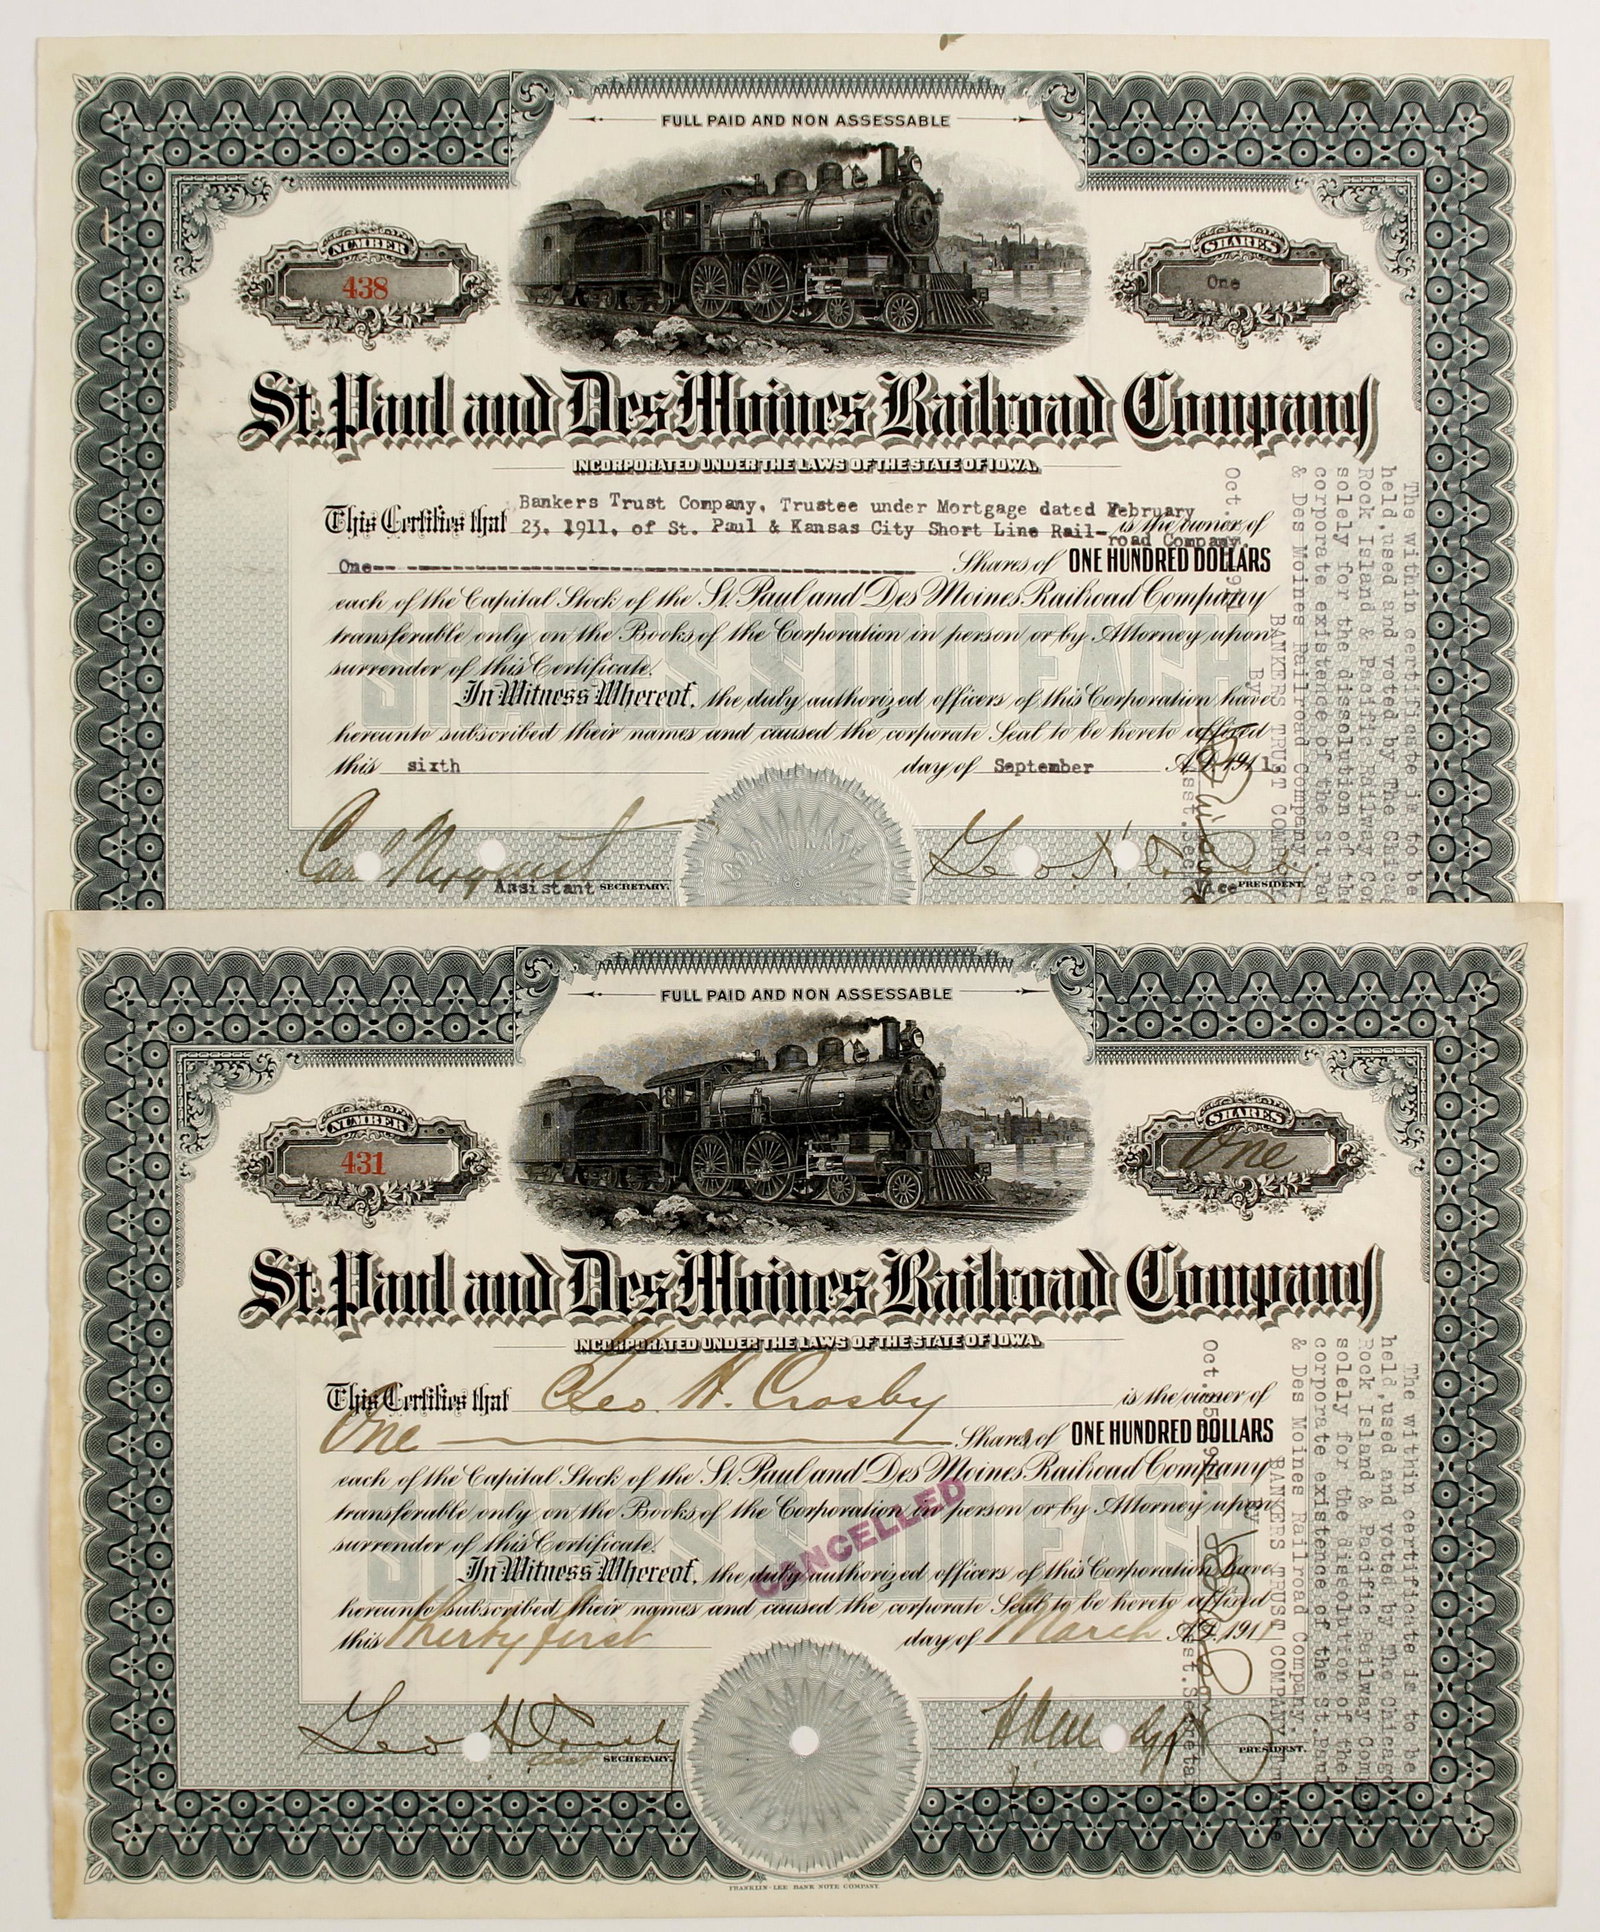 FULL PAID AND NON ASSESSABLE
NUMBER
438
SHARES
One
St. Paul and Des Moines Railroad Company
INCORPORATED UNDER THE LAWS OF THE STATE OF IOWA.
This Certifies that Bankers Trust Company, Trustee under Mortgage dated February
23, 1911, of St. Paul & Kansas City Short Line Rail- is the owner of
road Company.
One Shares of ONE HUNDRED DOLLARS
each of the Capital Stock of the St. Paul and Des Moines Railroad Company
transferable only on the Books of the Corporation in person or by Attorney upon
surrender of this Certificate.
SHARES $100 EACH
In Witness Whereof, the duly authorized officers of this Corporation have
hereunto subscribed their names and caused the corporate Seal to be hereto affixed
this sixth day of September A.D. 1911.
Carl Nyquist
Assistant SECRETARY.
Geo H Crosby
Vice PRESIDENT.
CORPORATE
The within certificate is to be
held, used and voted by The Chicago
Rock Island & Pacific Railway Com
solely for the dissolution of the
corporate existence of the St. Paul
& Des Moines Railroad Company.
BANKERS TRUST COMPANY
By
Asst. Sec
Oct.
FULL PAID AND NON ASSESSABLE
NUMBER
431
SHARES
One
St. Paul and Des Moines Railroad Company
INCORPORATED UNDER THE LAWS OF THE STATE OF IOWA.
This Certifies that Geo. H. Crosby is the owner of
One Shares of ONE HUNDRED DOLLARS
each of the Capital Stock of the St. Paul and Des Moines Railroad Company
transferable only on the Books of the Corporation in person or by Attorney upon
surrender of this Certificate.
SHARES $100 EACH
CANCELLED
In Witness Whereof, the duly authorized officers of this Corporation have
hereunto subscribed their names and caused the corporate Seal to be hereto affixed
this thirty first day of March A.D. 1911
Geo H Crosby
Asst SECRETARY.
PRESIDENT.
The within certificate is to be
held, used and voted by The Chicago
Rock Island & Pacific Railway Com
solely for the dissolution of the
corporate existence of the St. Paul
& Des Moines Railroad Company.
BANKERS TRUST COMPANY, Trustee
By
Asst. Secretar
Oct. 5
FRANKLIN-LEE BANK NOTE COMPANY